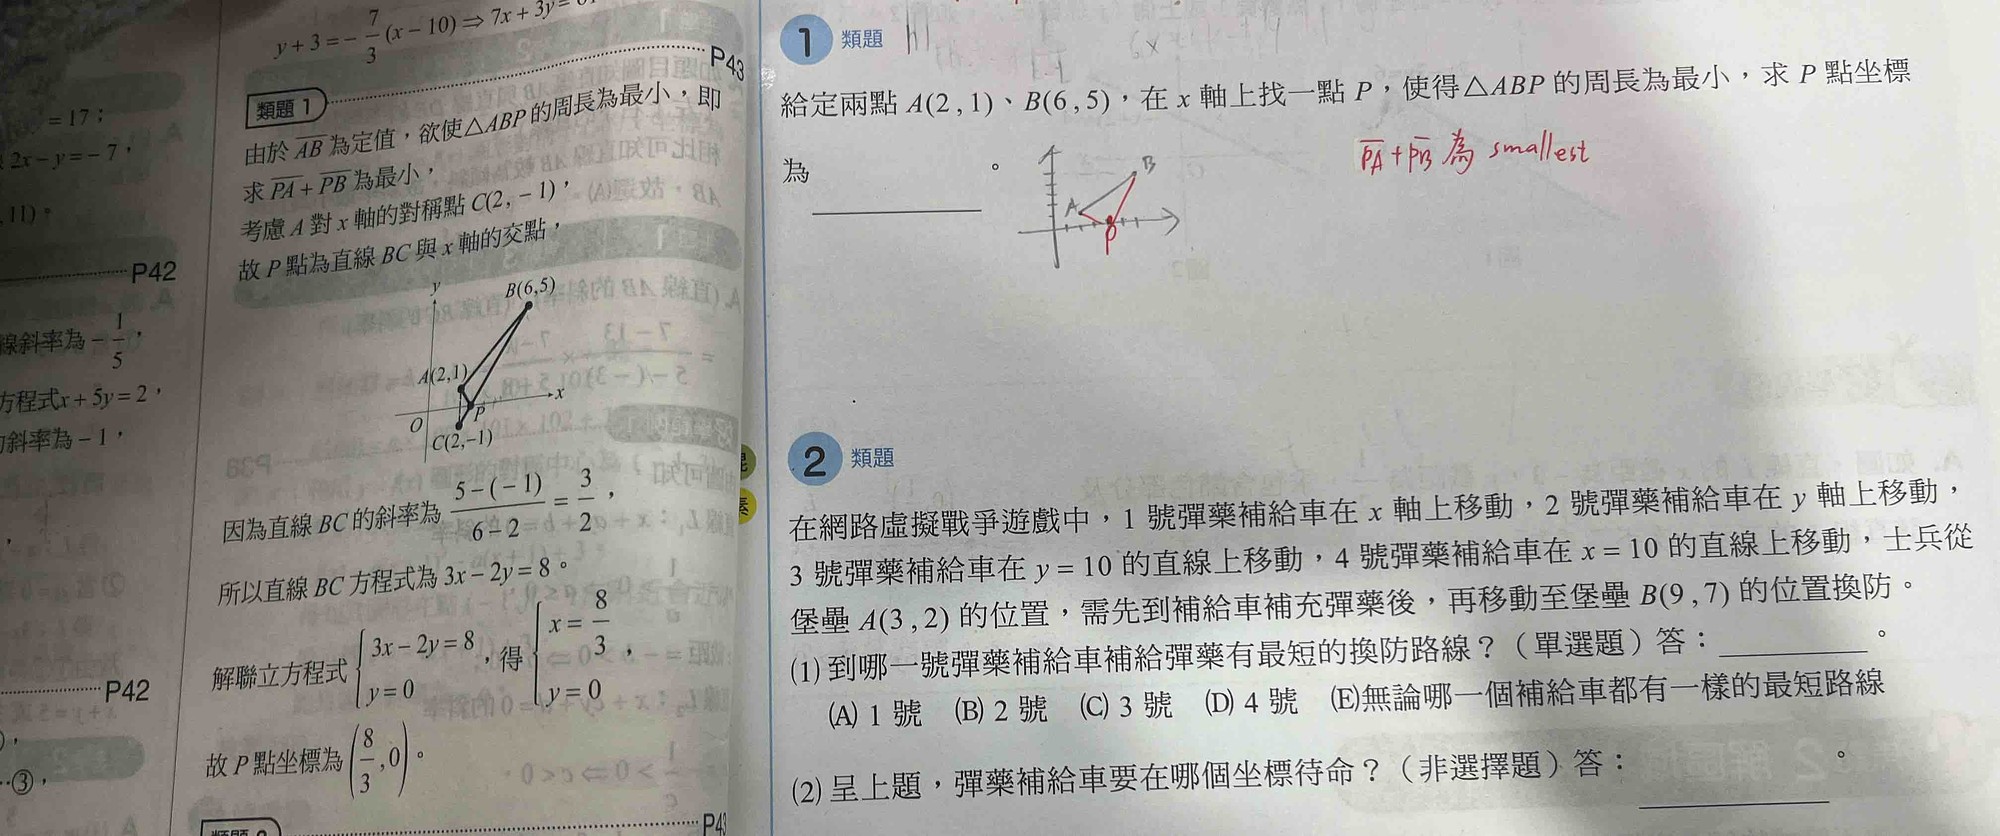 =17；
2x－y=－7，
11)。
P42
線斜率為－1/5，
方程式x+5y=2，
斜率為－1，
P42
…③，
y+3=－7/3(x－10)⇒7x+3y=
P43
類題 1
由於 AB 為定值，欲使△ABP 的周長為最小，即
求 PA+PB 為最小，
考慮 A 對 x 軸的對稱點 C(2,－1)，
故 P 點為直線 BC 與 x 軸的交點，
y
B(6,5)
A(2,1)
x
O
P
C(2,－1)
因為直線 BC 的斜率為 5－(－1)/6－2 = 3/2，
所以直線 BC 方程式為 3x－2y=8。
解聯立方程式 { 3x－2y=8, y=0，得 { x=8/3, y=0，
故 P 點坐標為 (8/3,0)。
P43
1 類題
給定兩點 A(2,1)、B(6,5)，在 x 軸上找一點 P，使得△ABP 的周長為最小，求 P 點坐標
為＿＿＿＿。
PA+PB 為 smallest
B
A
P
2 類題
在網路虛擬戰爭遊戲中，1 號彈藥補給車在 x 軸上移動，2 號彈藥補給車在 y 軸上移動，
3 號彈藥補給車在 y = 10 的直線上移動，4 號彈藥補給車在 x = 10 的直線上移動，士兵從
堡壘 A(3,2) 的位置，需先到補給車補充彈藥後，再移動至堡壘 B(9,7) 的位置換防。
(1) 到哪一號彈藥補給車補給彈藥有最短的換防路線？（單選題）答：＿＿＿＿。
(A) 1 號 (B) 2 號 (C) 3 號 (D) 4 號 (E)無論哪一個補給車都有一樣的最短路線
(2) 呈上題，彈藥補給車要在哪個坐標待命？（非選擇題）答：＿＿＿＿。